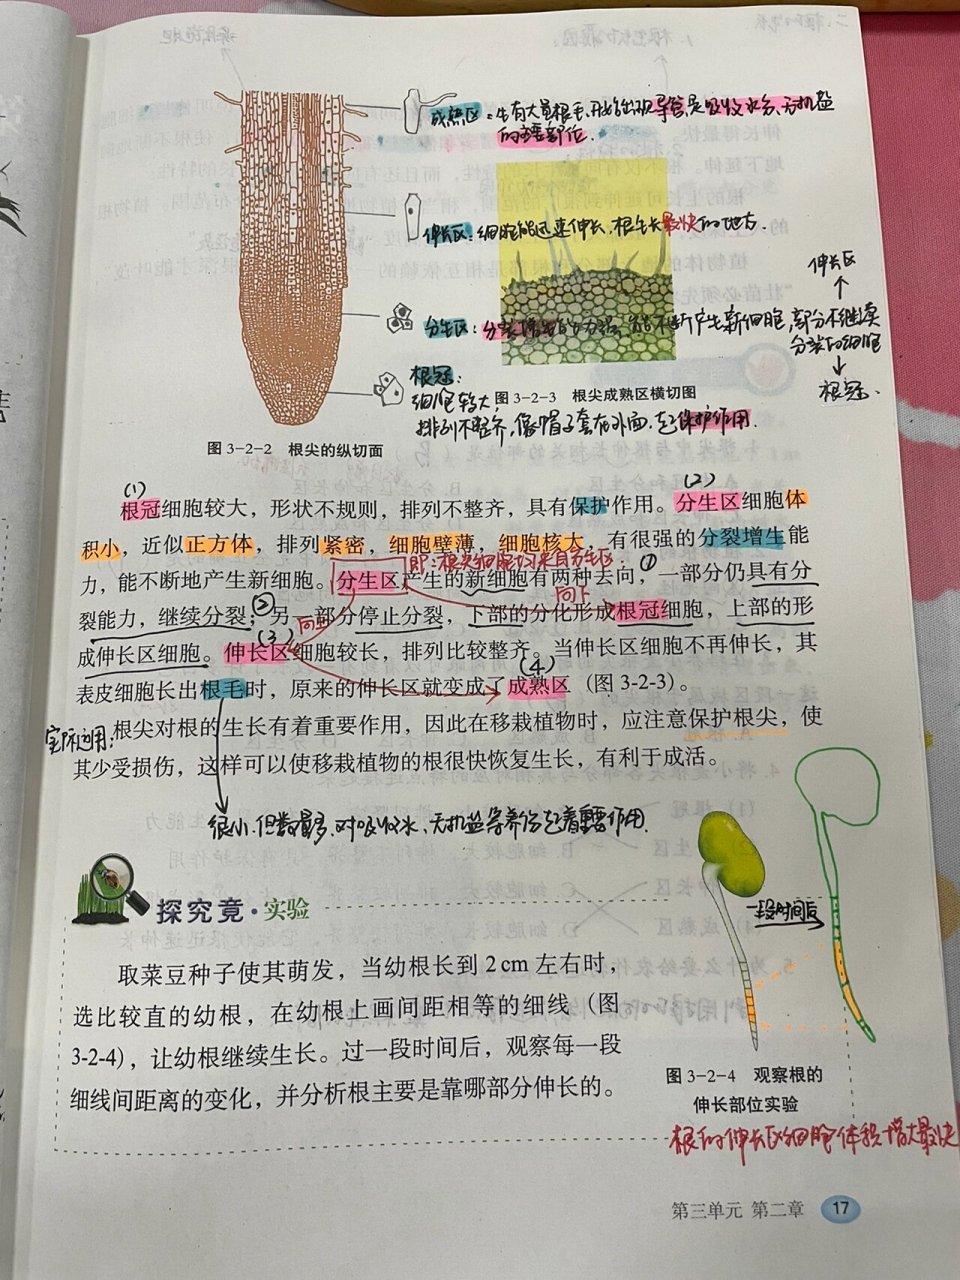 成熟区:生有大量根毛,开始出现导管,是吸收水分、无机盐
的主要部位.
伸长区:细胞能迅速伸长,根生长最快的地方.
伸长区
分生区:分裂增生能力强,能不断产生新细胞,部分不继续
分裂的细胞
根冠.
根冠:
细胞较大,
排列不整齐,像帽子套在外面.起保护作用.
图 3-2-3 根尖成熟区横切图
图 3-2-2 根尖的纵切面
(1) (2)
根冠细胞较大,形状不规则,排列不整齐,具有保护作用。分生区细胞体
积小,近似正方体,排列紧密,细胞壁薄,细胞核大,有很强的分裂增生能
即:根尖细胞均来自分生区.
力,能不断地产生新细胞。分生区产生的新细胞有两种去向,①一部分仍具有分
向下
裂能力,继续分裂;②另一部分停止分裂,下部的分化形成根冠细胞,上部的形
向上
(3)
成伸长区细胞。伸长区细胞较长,排列比较整齐。当伸长区细胞不再伸长,其
(4)
表皮细胞长出根毛时,原来的伸长区就变成了成熟区(图 3-2-3)。
实际运用:根尖对根的生长有着重要作用,因此在移栽植物时,应注意保护根尖,使
其少受损伤,这样可以使移栽植物的根很快恢复生长,有利于成活。
很小.但数量多.对吸收水、无机盐等养份起着重要作用.
探究竟·实验
一段时间后
取菜豆种子使其萌发,当幼根长到 2 cm 左右时,
选比较直的幼根,在幼根上画间距相等的细线(图
3-2-4),让幼根继续生长。过一段时间后,观察每一段
细线间距离的变化,并分析根主要是靠哪部分伸长的。
图 3-2-4 观察根的
伸长部位实验
根的伸长区细胞体积增大最快
第三单元 第二章 17